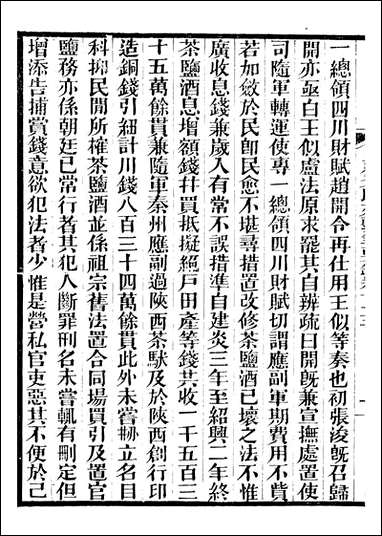 一總領四川財賦趙開合再仕用王似等奏也初張浚旣召歸
開亦亟白王似盧法原求罷其自辨疏曰開旣兼宣撫處置使
司隨軍轉運使專一總領四川財賦切謂應副軍期費用不貲
若加斂於民卽民愈不堪尋措置改修茶鹽酒已壞之法不惟
廣收息錢兼歲入有常不誤指準自建炎三年至紹興二年終
茶鹽酒息增額錢幷買抵擬絕戸田產等錢共收一千五百三
十五萬餘貫兼隨軍秦州應副過陝西茶馱及於陝西創行印
造銅錢引紐計川錢八百三十四萬餘貫此外未嘗刱立名目
科抑民間所榷茶鹽酒並係祖宗舊法置合同場買引及置官
鹽務亦係朝廷已常行者其犯人斷罪刑名未嘗輒有刪定但
增添告捕賞錢意欲犯法者少惟是營私官吏惡其不便於己